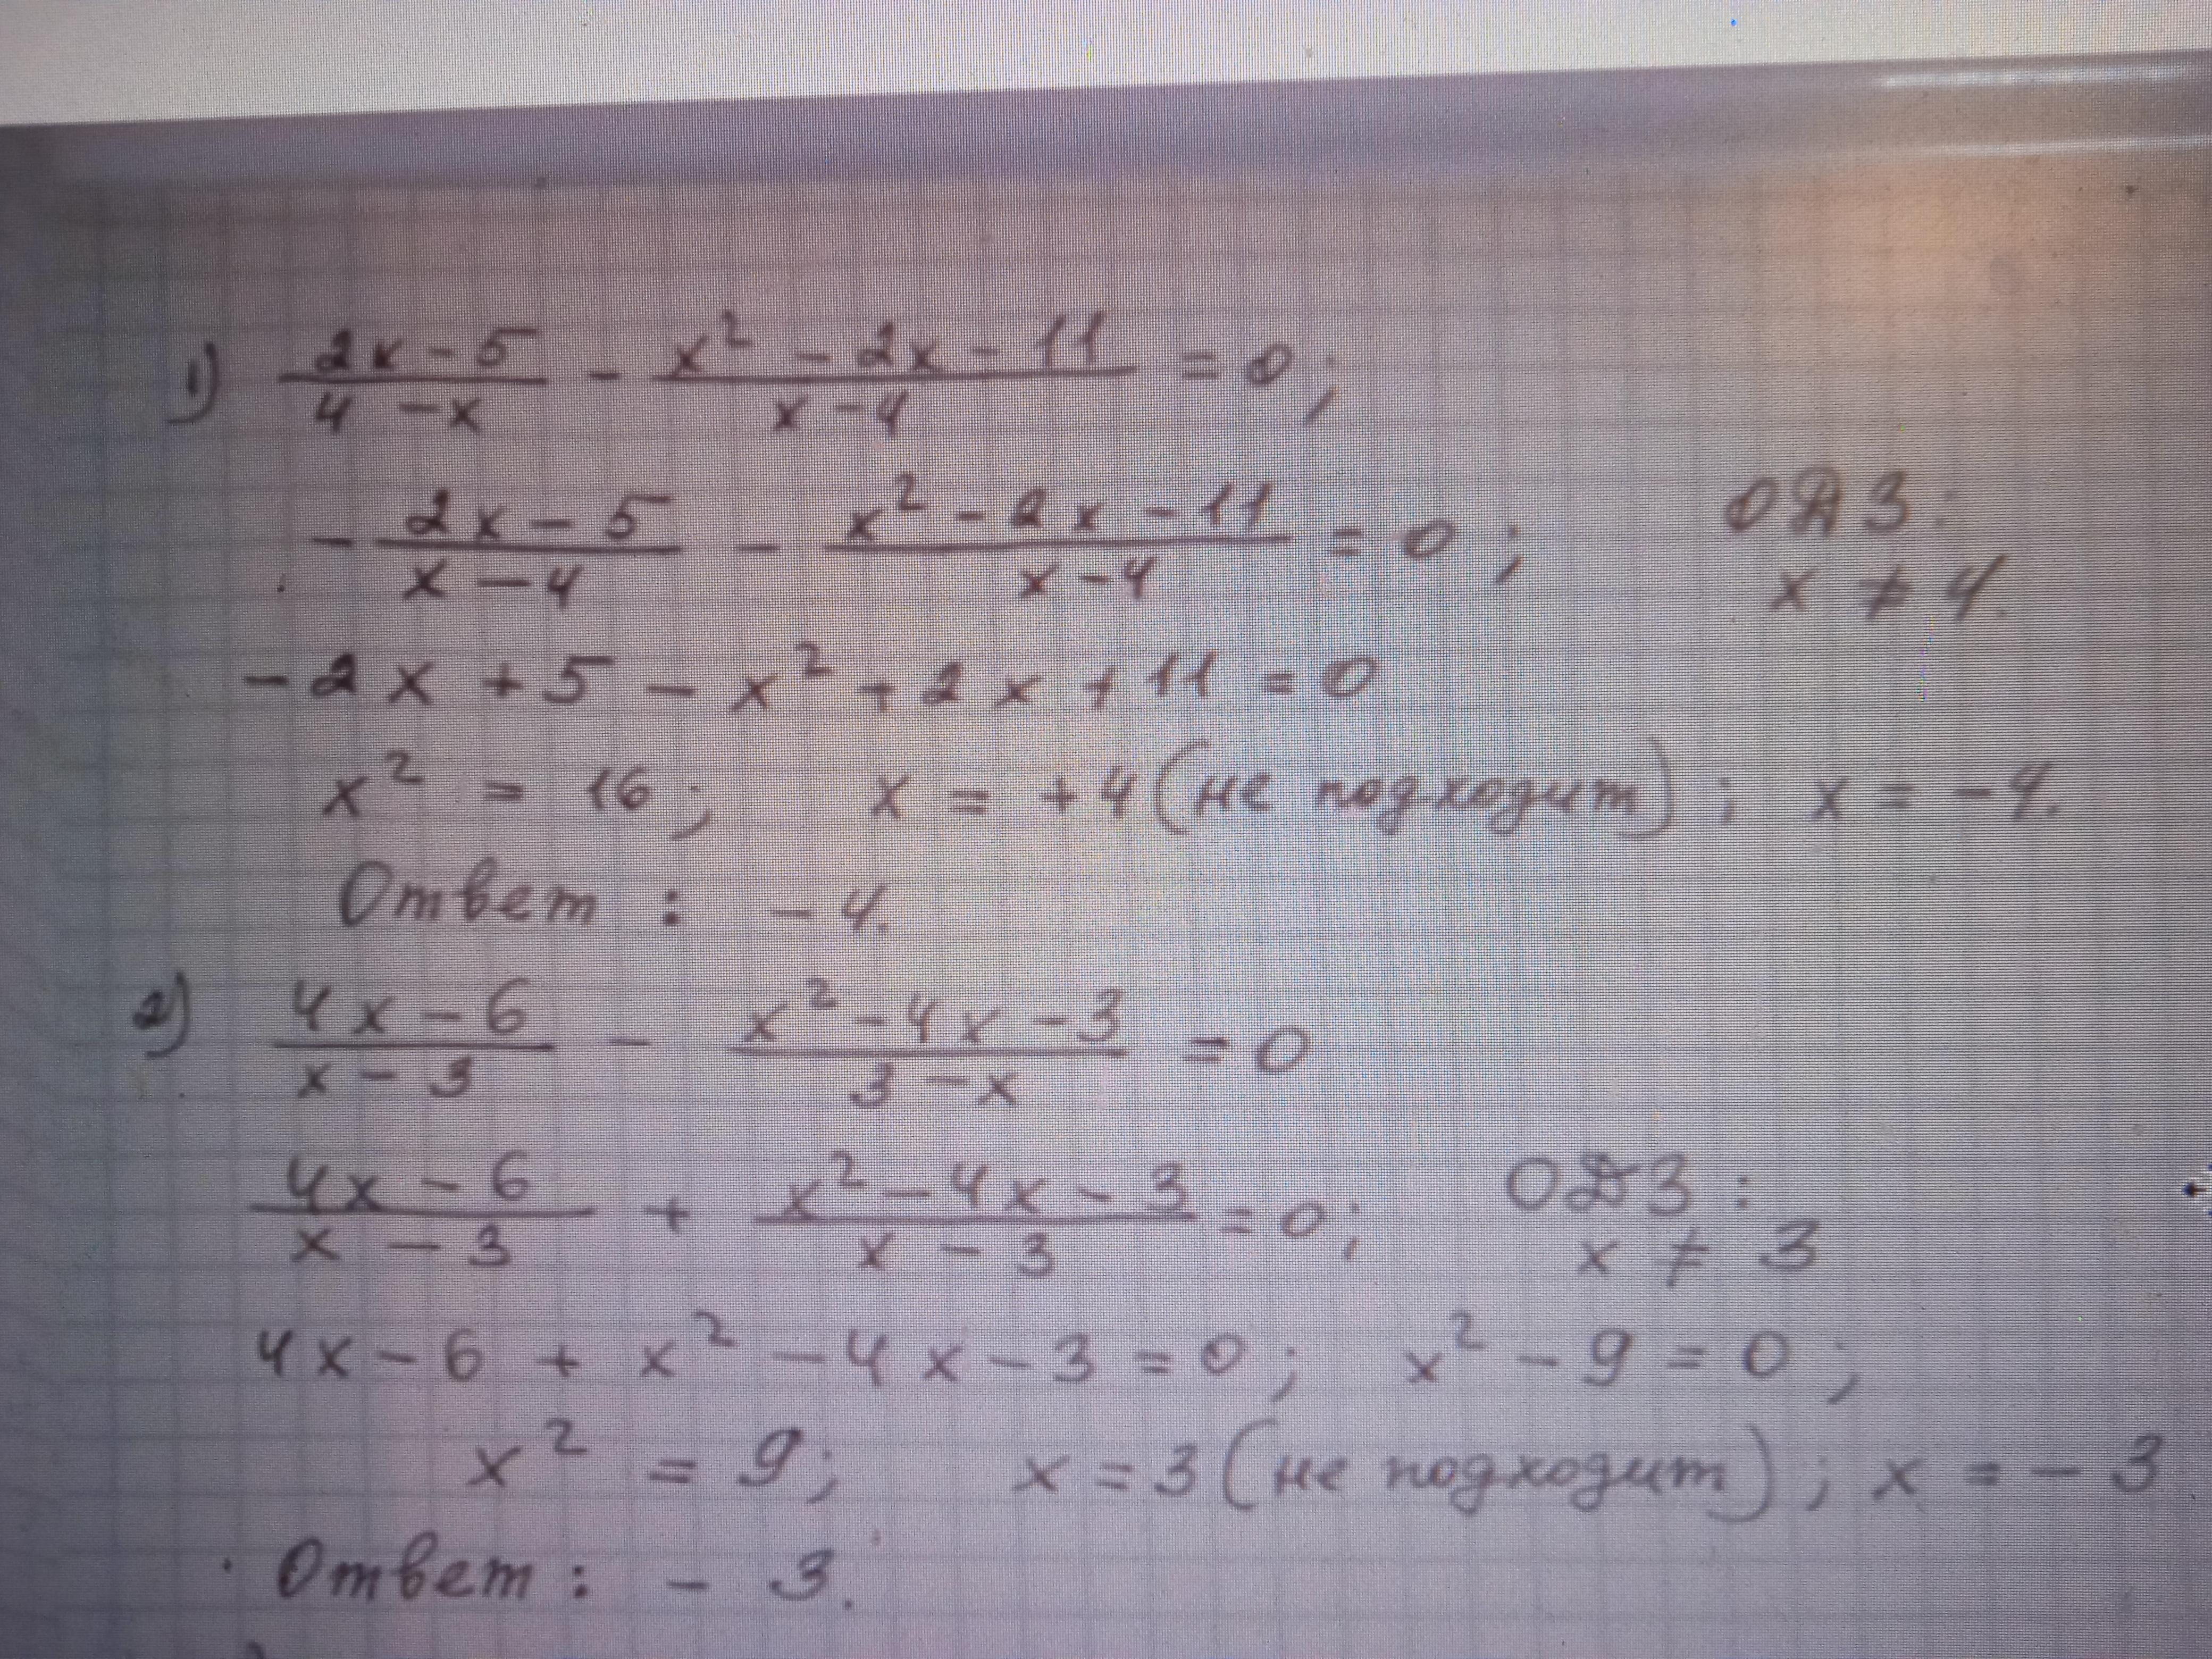 1) (2x - 5)/(4 - x) - (x² - 2x - 11)/(x - 4) = 0;
- (2x - 5)/(x - 4) - (x² - 2x - 11)/(x - 4) = 0; ОДЗ:
x ≠ 4.
- 2x + 5 - x² + 2x + 11 = 0
x² = 16; x = +4 (не подходит); x = -4.
Ответ: -4.
2) (4x - 6)/(x - 3) - (x² - 4x - 3)/(3 - x) = 0
(4x - 6)/(x - 3) + (x² - 4x - 3)/(x - 3) = 0; ОДЗ:
x ≠ 3
4x - 6 + x² - 4x - 3 = 0; x² - 9 = 0;
x² = 9; x = 3 (не подходит); x = -3
Ответ: -3.